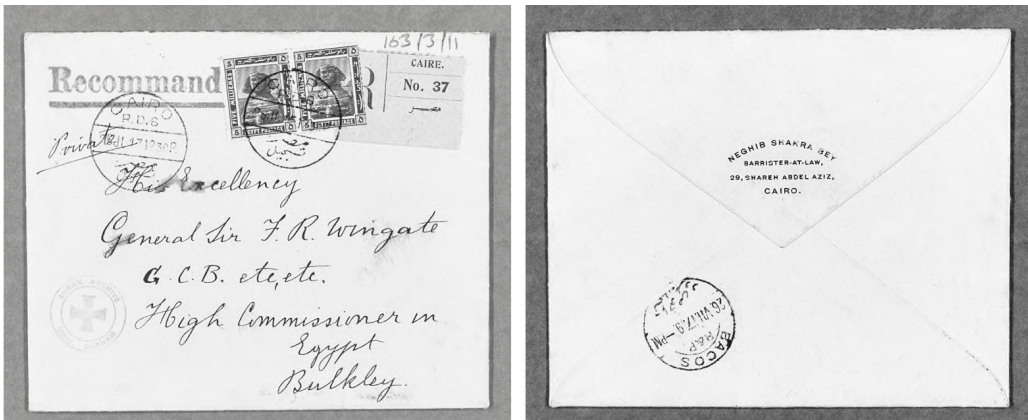 163/3/11
Recommand
CAIRE.
R
No. 37
مصر
CAIRO
R.D.6
Private
His Excellency
General Sir F. R. Wingate
G.C.B. etc, etc.
High Commissioner in
Egypt
Bulkley.
SUDAN ARCHIVE
NEGHIB SHAKRA BEY
BARRISTER-AT-LAW,
29, SHAREH ABDEL AZIZ,
CAIRO.
26.VII.17.9-PM
R&P
BACOS